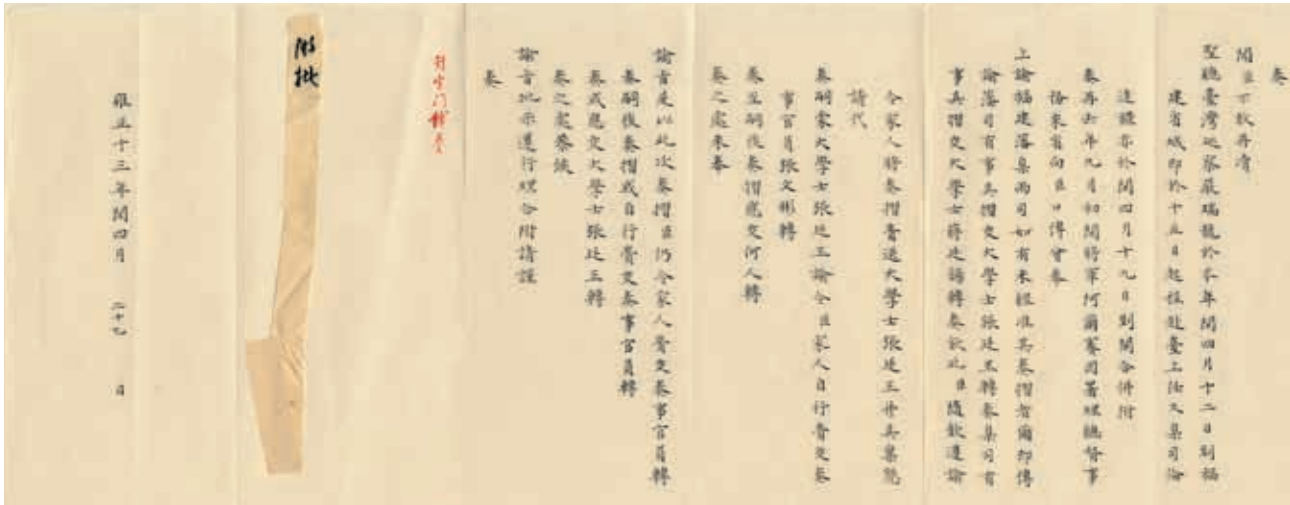 奏
聖聽臺灣巡察嚴瑞龍於本年閏四月十二日到福
建省城即於十五日起程赴臺上任又臬司倫
達禮亦於閏四月十九日到閩合併附
奏再去年九月初間將軍阿爾賽因署理總督事
務來省向臣口傳曾奉
上諭福建藩臬兩司如有未經准其奏摺者爾即傳
諭藩司有事具摺交大學士張廷玉轉奏臬司有
事具摺交大學士蔣廷錫轉奏欽此臣隨欽遵諭
令家人將奏摺賫送大學士張廷玉并具稟懇
請代
奏嗣蒙大學士張廷玉諭令臣家人自行賫交奏
事官員張文彬轉
奏至嗣後奏摺應交何人轉
奏之處未奉
諭旨是以此次奏摺臣仍令家人賫交奏事官員轉
奏嗣後奏摺或自行賫交奏事官員轉
奏或應交大學士張廷玉轉
奏之處恭候
諭旨批示遵行理合附請謹
奏
到宮門轉奏
附批
雍正十三年閏四月 二十九 日